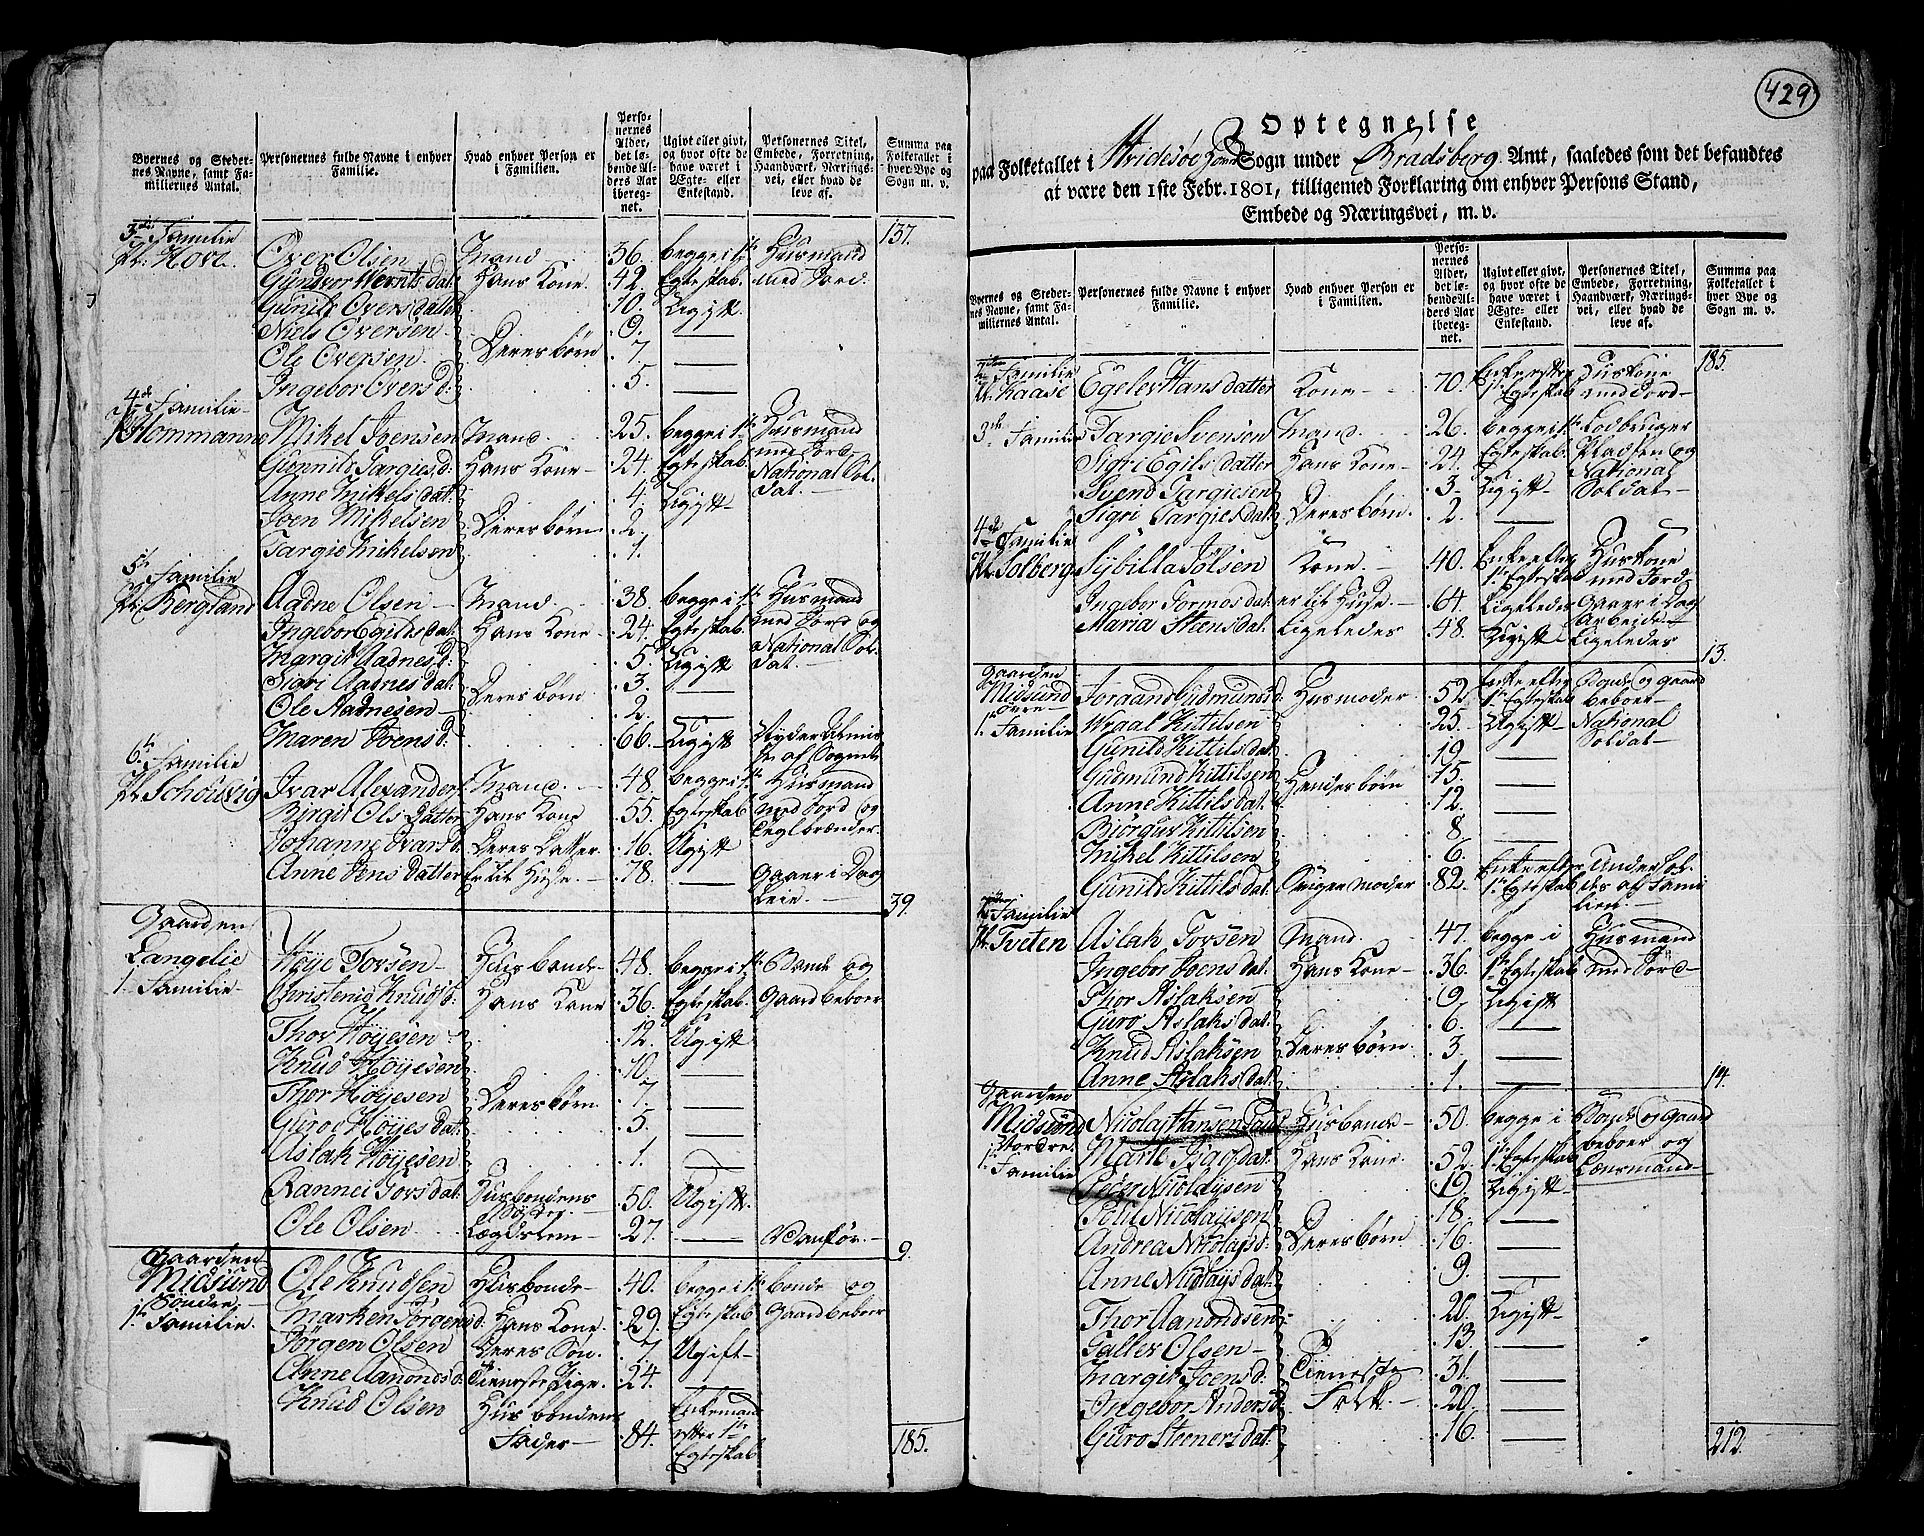 Byernes og Stedernes Navne, samt Familiernes Antal.
Personernes fulde Navne i enhver Familie.
Hvad enhver Person er i Familien.
Personernes Alder, det løbende Alders Aar iberegnet.
Ugivt eller givt, og hvor ofte de have været i Ægte- eller Enkestand.
Personernes Titel, Embede, Forretning, Haandværk, Næringsvei, eller hvad de leve af.
Summa paa Folketallet i hver Bye og Sogn m. v.
3die Familie 137.
Pl: Hove Over Olsen Mand 36. begge i 1te Husmand
Gunvor Wernts dat. Hans Kone 42. Egteskab. med Jord.
Gunild Overs datter 10. Ugift
Niels Oversen 9. —
Ole Oversen Deres børn 7. —
Ingebor Overs d: 5. —
4de Familie
Mikel Joensen Mand 25. begge i 1te Husmand
Gunnild Targies d: Hans Kone 24. Egteskab. med Jord
Anne Mikels dat: 4. Ugift National Soldat.
Joen Mikelsen Deres børn 2. —
Targie Mikelsen 1.
5te Familie
Pl: Bergland Aadne Olsen Mand 38. begge i 1te Husmand
Ingebor Egilds dat. Hans Kone 24. Egteskab. med Jord og
Margit Aadnes d: 5. Ugift National Soldat.
Sigri Aadnes dat 3. —
Ole Aadnesen Deres børn 2. —
Maren Joens d: 66. Ugift Nyder Almisse af Sognet
6te Familie
Ivar Alexanders Mand 48. begge i 1te Husmand
Birgit Ols Datter Hans Kone 55. Egteskab med Jord og
Johanne Ivars d: Deres Datter 16. Ugift Teglbrænder
Anne Jens Datter Er til Huse. 78. — Gaaer i Dag Leie.
39.
Gaarden
Langelie Høye Torsen Husbonde 48. begge i 1te Bonde og
1. Familie Christense Knuds d: Hans Kone 36. Egteskab. Gaardbeboer
Thor Høyesen 12. Ugift
Knud Høyesen 10. —
Thor Høyesen Deres børn 7. —
Guro Høyes dat. 5. —
Aslak Høyesen 1. —
Rannei Tors dat. Husbondens Søster 50. Ugift
Ole Olsen Lægdslem 27. — Vanfør.
9.
Gaarden
Midsund Ole Knudsen Husbonde 40. begge i 1te bonde og
Søndre Marken Jørgens d. Hans Kone 29. Egteskab Gaardbeboer
1te Familie. Jørgen Olsen Deres Søn. 7. Ugift
Anne Aanonds d: Tieneste Pige. 24. —
Knud Olsen Husbondens Fader 84. Enkemand efter 1te Egteskab
185.
429
Optegnelse
paa Folketallet i Hvidesøe Sogn under Bradsberg Amt, saaledes som det befandtes
at være den 1ste Febr. 1801, tilligemed Forklaring om enhver Persons Stand,
Embede og Næringsvei, m. v.
Byernes og Stedernes Navne, samt Familiernes Antal.
Personernes fulde Navne i enhver Familie.
Hvad enhver Person er i Familien.
Personernes Alder, det løbende Alders Aar iberegnet.
Ugivt eller givt, og hvor ofte de have været i Ægte- eller Enkestand.
Personernes Titel, Embede, Forretning, Haandværk, Næringsvei, eller hvad de leve af.
Summa paa Folketallet i hver Bye og Sogn m. v.
2den Familie 185.
Pl. Haase Egelev Hans datter Kone 70. Enke efter 1te Egteskab Huskone med Jord
3die Familie Targie Svensen Mand 26. begge i 1te Lodbruger
Sigri Egils datter Hans Kone 24. Egteskab. Pladsen og
Svend Targiesen 3. Ugift National
Sigri Targies dat. Deres børn. 2. — Soldat
4de Familie
Pl: Solberg Sybilla Jølsen Kone. 40. Enke efter 1te Egteskab Huskone med Jord
Ingebor Tormos dat. er til Huse. 64. Ligeledes Gaaer i Dag Arbeide
Maria Steens dat. Ligeledes 48. Ugift Ligeledes
13.
Gaarden
Midsund Joraand Gudmunds d: Husmoder 52. Enke efter 1te Bonde og Gaard beboer
1. Familie Wraal Kittilsen 25. Ugift National Soldat
Gunild Kittils dat. 19 —
Gudmund Kittilsen Hendes børn 15. —
Anne Kittils dat. 12. —
Biørgus Kittilsen 8. —
Mikel Kittilsen 6. —
Gunild Kittils dat. 82. Enke efter 1te Egteskab Underholdes af Familien.
2den Familie
Pl. Tveten Aslak Torsen Mand. 47. begge i Husmand
Ingebor Joens dat. Hans Kone 36. 1te Egteskab med Jord
Thor Aslaksen 9. Ugift
Guro Aslaks dat. 6. —
Knud Aslaksen Deres børn. 3. —
Anne Aslaks dat. 1. —
14.
Gaarden
Midsund Nicolay Hansen Husbonde 50. begge i Bonde og Gaard
Nordre. Marte dat. Hans Kone. 52. 1te Egteskab beboer og
1. Familie Peder Nicolaysen 19. Ugift Lænsmand
Povel Nicolaysen 18. —
Andrea Nicolays d: Deres børn 16. —
Anne Nicolays dat. 9. —
Thor Aanondsen 20. Ugift
Taller Olsen 13. —
Margit Joens d: Tieneste 31. —
Ingebor Anders d Folk 20. —
Guro Steners dat. 16. —
212.